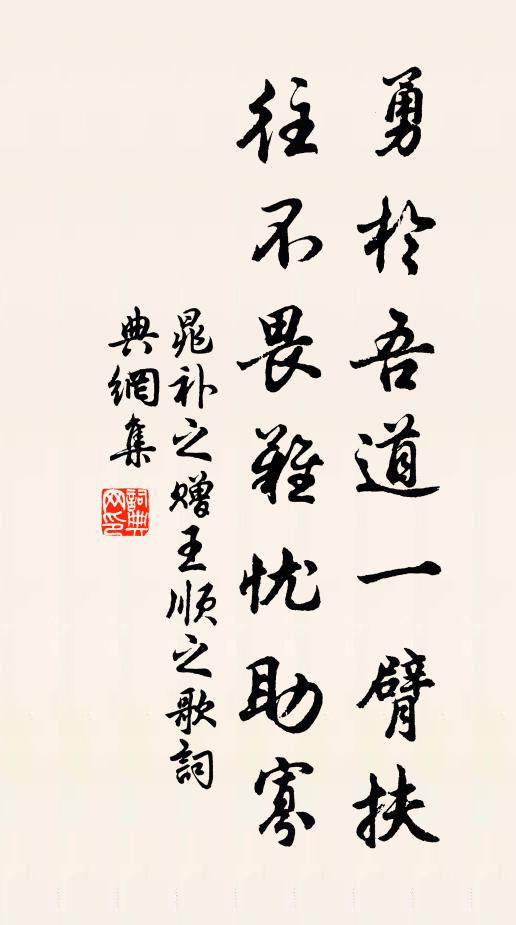 勇於吾道一臂扶
往不畏難忧助寡
晁补之赠王順之歌詞
典網集
詞典
网印